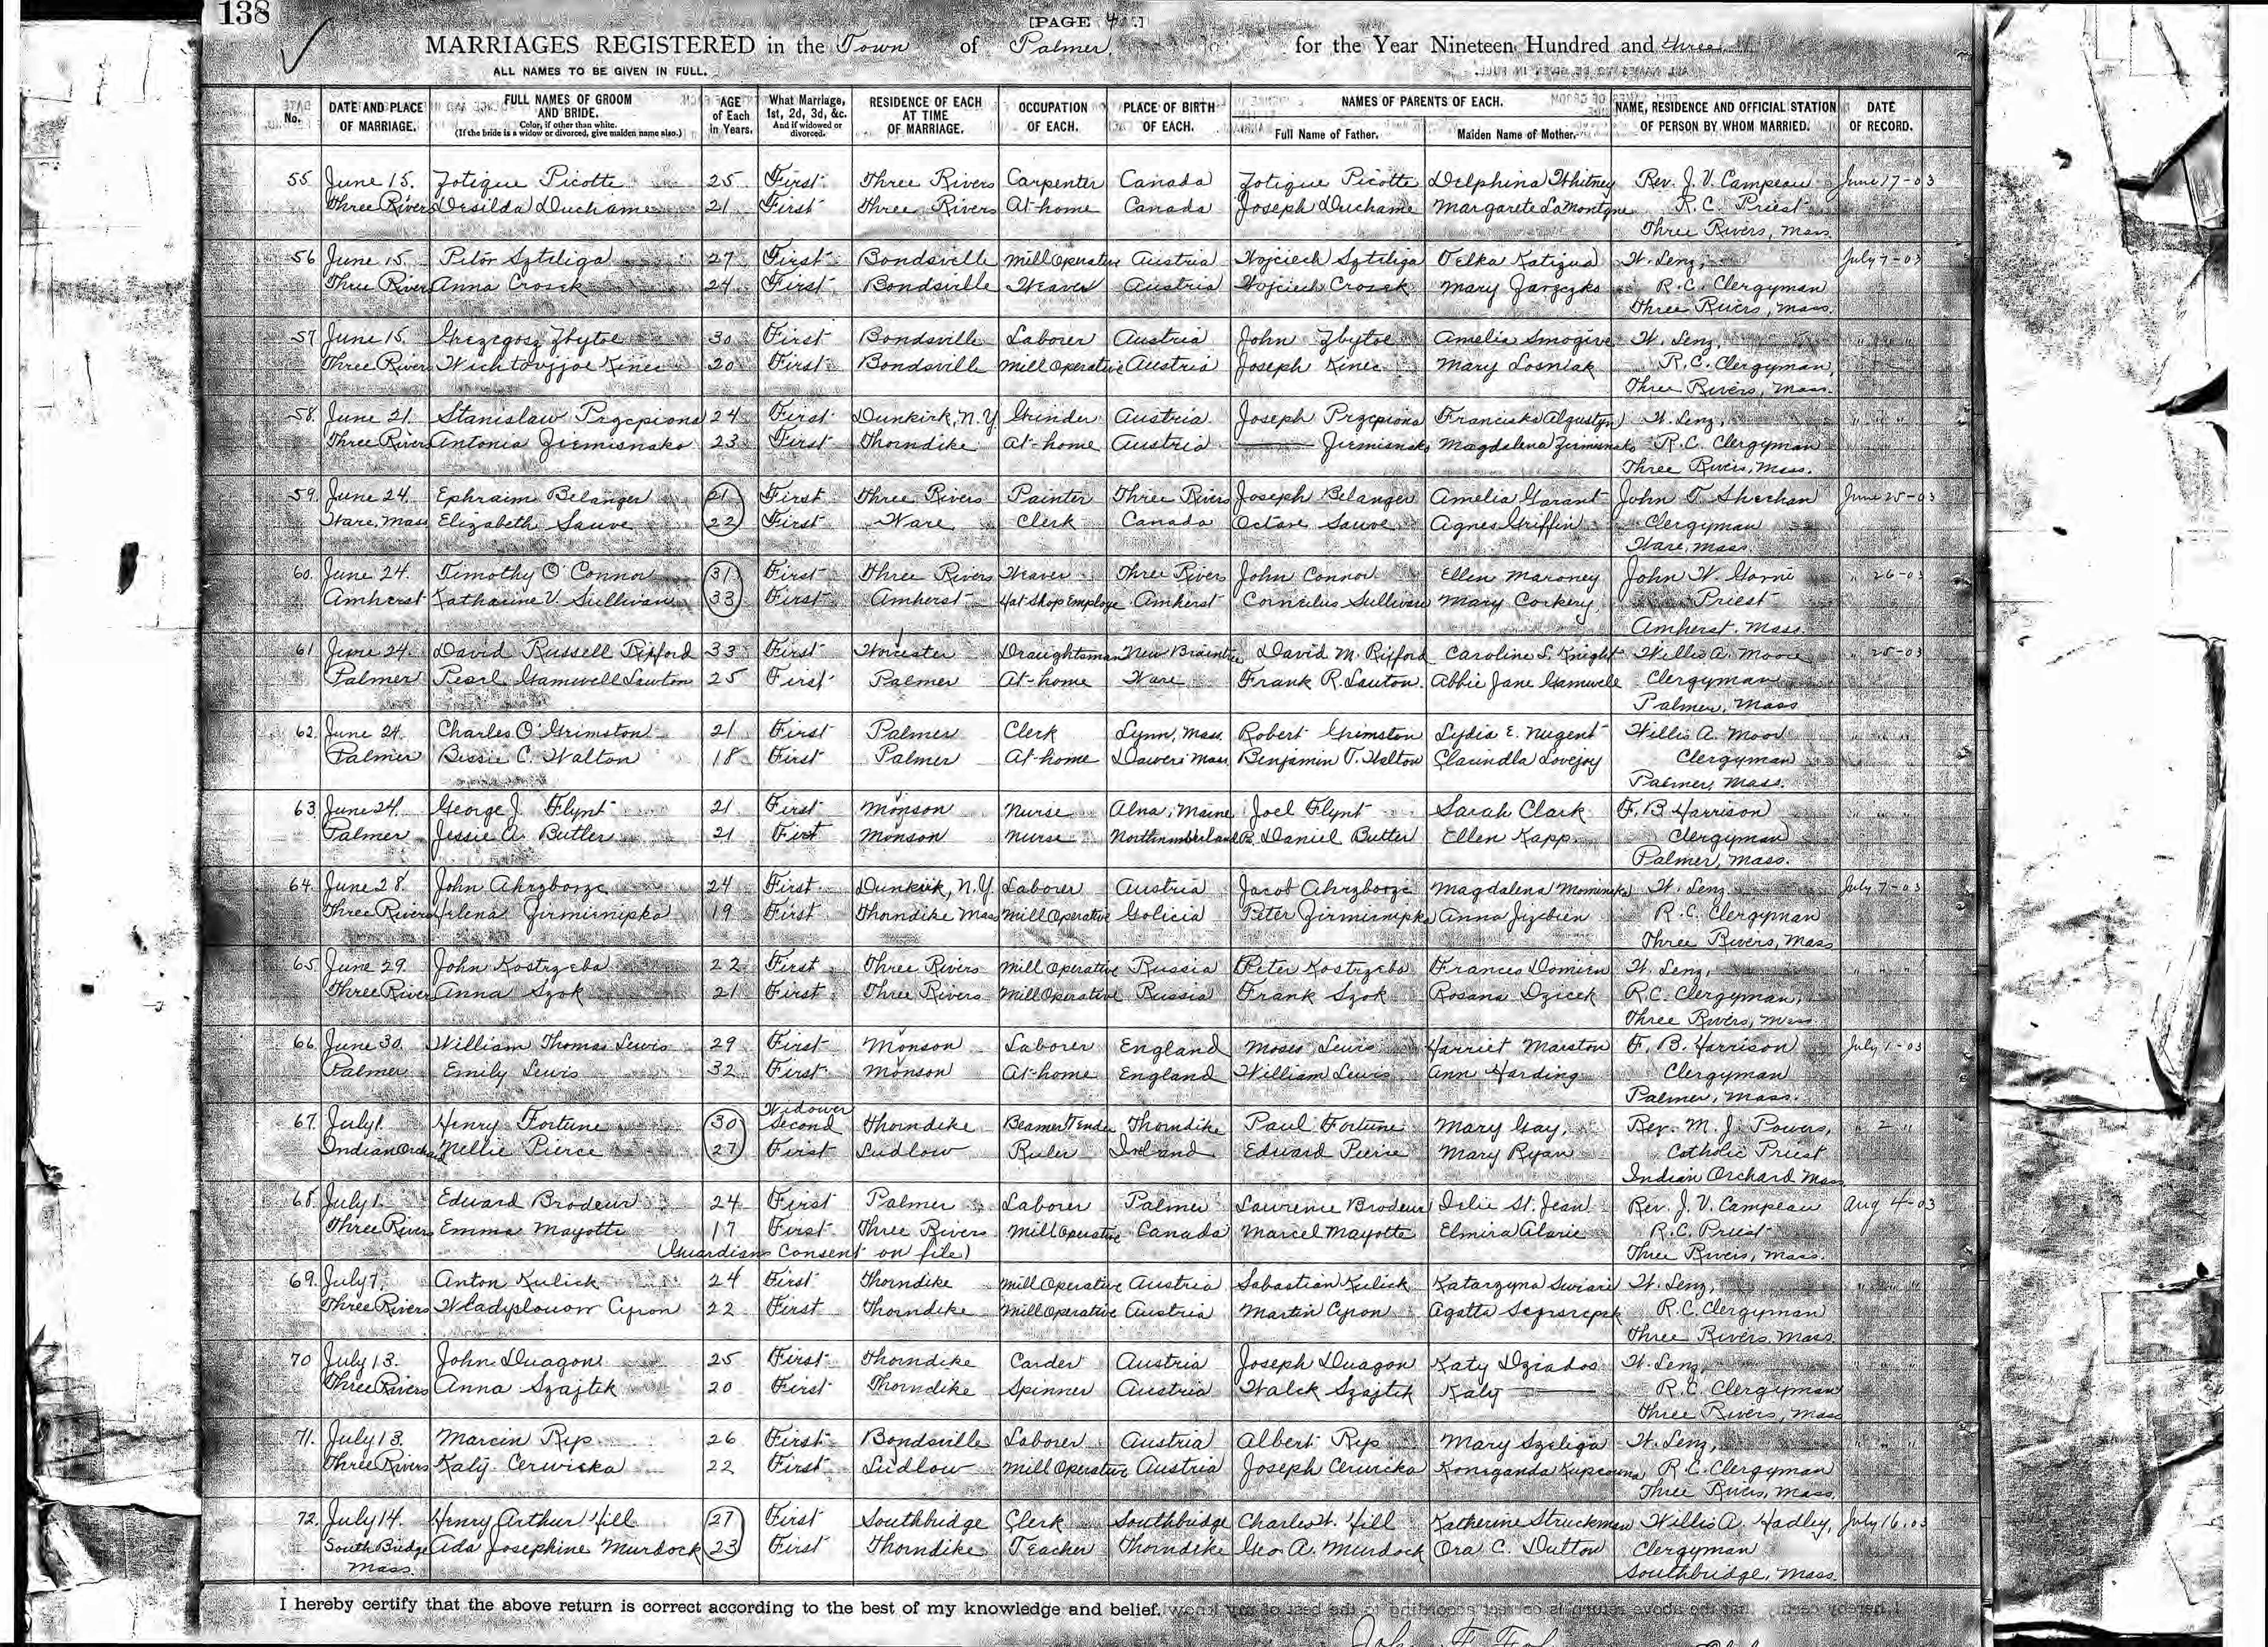 138
[PAGE 4 .]
MARRIAGES REGISTERED in the Town of Palmer, for the Year Nineteen Hundred and three
ALL NAMES TO BE GIVEN IN FULL.
No. DATE AND PLACE OF MARRIAGE. FULL NAMES OF GROOM AND BRIDE. Color, if other than white. (If the bride is a widow or divorced, give maiden name also.) AGE of Each in Years. What Marriage, 1st, 2d, 3d, &c. And if widowed or divorced. RESIDENCE OF EACH AT TIME OF MARRIAGE. OCCUPATION OF EACH. PLACE OF BIRTH OF EACH. NAMES OF PARENTS OF EACH. Full Name of Father. Maiden Name of Mother. NAME, RESIDENCE AND OFFICIAL STATION OF PERSON BY WHOM MARRIED. DATE OF RECORD.
55 June 15. Zotique Picotte 25 First Three Rivers Carpenter Canada Zotique Picotte Delphina Whitney Rev. J. V. Campeau June 17-03
Three Rivers Desilda Duchame 21 First Three Rivers At-home Canada Joseph Duchame Margarete LaMontyne R. C. Priest
Three Rivers, Mass.
56 June 15. Petor Szteliga 27 First Bondsville Mill Operative Austria Wojciech Szteliga W. Lenz, July 7-03
Three Rivers Anna Crosek 24 First Bondsville Weaver Austria Wojciech Crosek Mary Jarzczko R. C. Clergyman
Three Rivers, Mass.
57 June 15. Grezegosz Zbytoe 30 First Bondsville Laborer Austria John Zbytoe Amelia Smogive W. Lenz, " " "
Three Rivers Wichtovjjoe Kinec 20 First Bondsville Mill Operative Austria Joseph Kinec Mary Losniak R. C. Clergyman,
Three Rivers, Mass.
58 June 21. Stanislaw Przcpiona 24 First Dunkirk, N.Y. Grinder Austria Joseph Przcpiona Franciska Algustyn W. Lenz, " " "
Three Rivers Antonia Ziemisnako 23 First Thorndike At-home Austria —— Ziemisnako Magdalena Zirmisnako R. C. Clergyman
Three Rivers, Mass.
59. June 24. Ephraim Belanger 21 First Three Rivers Painter Three Rivers Joseph Belanger Amelia Garant John T. Sheehan June 25-03
Ware, Mass Elizabeth Sauve 22 First Ware Clerk Canada Octave Sauve Agnes Griffin Clergyman
Ware, Mass.
60. June 24. Timothy O'Connor 31 First Three Rivers Weaver Three Rivers John Connor Ellen Maroney John W. " 26-03
Amherst Katharine V. Sullivan 33 First Amherst Hat Shop Employe Amherst Cornelius Sullivan Mary Corkery Priest
Amherst. Mass.
61 June 24. David Russell Rixford 33 First Worcester Draughtsman New Braintree David M. Rixford Caroline S. Knight Willis A. Moore " 25-03
Palmer Pearl Gamwell Lawton 25 First Palmer At-home Ware Frank R. Lawton. Abbie Jane Gamwell Clergyman
Palmer, Mass
62. June 24. Charles O. Grimston 21 First Palmer Clerk Lynn, Mass. Robert Grimston Lydia E. Nugent Willis A. Moore " " "
Palmer Bessie C. Walton 18 First Palmer At-home Mass. Benjamin T. Walton Clarindla Lovejoy Clergyman
Palmer, Mass.
63. June 24. George J. Flynt 21 First Monson Nurse Alna, Maine Joel Flynt Sarah Clark F. B. Harrison " " "
Palmer Jessie A. Butler 21 First Monson Nurse Northumberland Pa. Daniel Butler Ellen Kapp. Clergyman
Palmer, Mass.
64. June 28. John Ahrzborze 24 First Dunkirk, N.Y. Laborer Austria Jacob Ahrzborze Magdalena Mominska W. Lenz July 7-03
Three Rivers Helena Zirmirnipka 19 First Thorndike Mass Mill Operative Galicia Peter Zirmirnipka Anna Jizebien R. C. Clergyman
Three Rivers, Mass
65 June 29. John Kostrzeba 22 First Three Rivers Mill Operative Russia Peter Kostrzeba Frances Domien W. Lenz, " " "
Three Rivers Anna Szok 21 First Three Rivers Mill Operative Russia Frank Szok Rosana Dzicek R. C. Clergyman,
Three Rivers, Mass
66. June 30. William Thomas Lewis 29 First Monson Laborer England Moses Lewis Harriet Marston F. B. Harrison July 1-03
Palmer Emily Lewis 32 First Monson At-home England William Lewis Ann Harding Clergyman
Palmer, Mass.
67. July 1. Henry Fortune 30 Widower Second Thorndike Beamer Tender Thorndike Paul Fortune Mary Gay, Rev. M. J. Powers, " 2 "
Indian Orchard Nellie Pierce 27 First Ludlow Ruler Ireland Edward Pierce Mary Ryan Catholic Priest
Indian Orchard Mass
68. July 1. Edward Brodeur 24 First Palmer Laborer Palmer Lawrence Brodeur Delie St. Jean Rev. J. V. Campeau Aug 4-03
Three Rivers Emma Mayotte 17 First Three Rivers Mill Operative Canada Marcel Mayotte Elmira Alarie R. C. Priest
(Guardians Consent on file) Three Rivers, Mass.
69. July 7. Anton Kulick 24 First Thorndike Mill Operative Austria Sabastian Kulick Katarzyna Swiari W. Lenz, " " "
Three Rivers Wladyslouow Cyron 22 First Thorndike Mill Operative Austria Martin Cyron Agatta R. C. Clergyman
Three Rivers. Mass.
70 July 13. John Duagon 25 First Thorndike Carder Austria Joseph Duagon Katy Dziados W. Lenz, " " "
Three Rivers Anna Szajtek 20 First Thorndike Spinner Austria Walek Szajtek Katy —— R. C. Clergyman
Three Rivers, Mass
71. July 13. Marcin Rys 26 First Bondsville Laborer Austria Albert Rys Mary Szeliga W. Lenz, " " "
Three Rivers Katy Cerwicka 22 First Ludlow Mill Operative Austria Joseph Cerwicka Koneganda Kupcowna R. C. Clergyman
Three Rivers, Mass.
72. July 14. Henry Arthur Hill 27 First Southbridge Clerk Southbridge Charles W. Hill Katherine Struckman Willis A. Hadley, July 16.03
South Bridge Ada Josephine Murdock 23 First Thorndike Teacher Thorndike Geo A. Murdock Ora C. Dutton Clergyman
Mass. Southbridge, Mass.
I hereby certify that the above return is correct according to the best of my knowledge and belief.